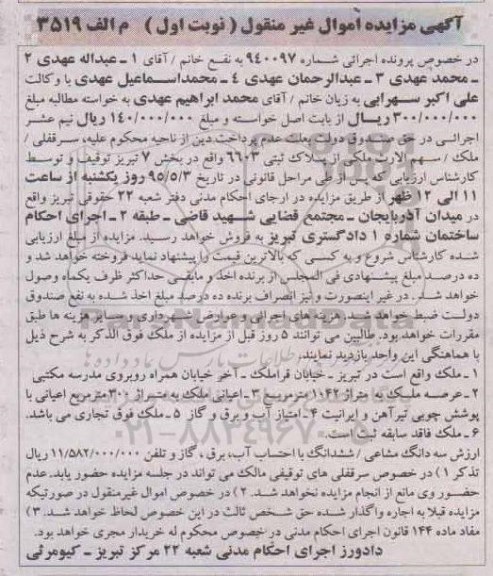 آگهی مزایده اموال غیر منقول ( نوبت اول ) م الف ۳۵۱۹
در خصوص پرونده اجرائی شماره ۹۴۰۰۹۷ به نفع خانم / آقای ۱ - عبداله عهدی ۲
- محمد عهدی ۳ - عبدالرحمان عهدی ۴ - محمداسماعیل عهدی با وکالت
علی اکبر سهرابی به زیان خانم / آقای محمد ابراهیم عهدی به خواسته مطالبه مبلغ
۳۰۰/۰۰۰/۰۰۰ ریال از بابت اصل خواسته و مبلغ ۱۴۰/۰۰۰/۰۰۰ ریال نیم عشر
اجرائی در حق صندوق دولت بعلت عدم پرداخت دین از ناحیه محکوم علیه، سرقفلی /
ملک / سهم الارث ملکی از پلاک ثبتی ۶۶۰۳ واقع در بخش ۷ تبریز توقیف و توسط
کارشناس ارزیابی که پس از طی مراحل قانونی در تاریخ ۹۵/۵/۳ روز یکشنبه از ساعت
۱۱ الی ۱۲ ظهر از طریق مزایده در اجرای احکام مدنی دفتر شعبه ۲۲ حقوقی تبریز واقع
در میدان آذربایجان - مجتمع قضایی شهید قاضی - طبقه ۲ - اجرای احکام
ساختمان شماره ۱ دادگستری تبریز به فروش خواهد رسید. مزایده از مبلغ ارزیابی
شده کارشناس شروع و به کسی که بالاترین قیمت را پیشنهاد نماید فروخته خواهد شد و
ده درصد مبلغ پیشنهادی فی المجلس از برنده اخذ و مابقی حداکثر ظرف یکماه وصول
خواهد شد. در غیر اینصورت و نیز انصراف برنده ده درصد مبلغ اخذ شده به نفع صندوق
دولت ضبط خواهد شد. هزینه های اجرائی و عوارض شهرداری و سایر هزینه ها طبق
مقررات خواهد بود. طالبین می توانند ۵ روز قبل از مزایده از ملک فوق الذکر به شرح ذیل
با هماهنگی این واحد بازدید نمایند.
۱ - ملک واقع است در تبریز - خیابان قراملک - آخر خیابان همراه روبروی مدرسه مکتبی
۲ - عرصه ملک به متراژ ۱۰۴۲ مترمربع ۳ - اعیانی ملک به متراژ ۳۰۰ مترمربع اعیانی با
پوشش چوبی تیرآهن و ایرانیت ۴ - امتیاز آب و برق و گاز ۵ - ملک فوق تجاری می باشد.
۶ - ملک فاقد سابقه ثبت است.
ارزش سه دانگ مشاعی / ششدانگ با احتساب آب، برق، گاز و تلفن ۱۱/۵۸۲/۰۰۰/۰۰۰ ریال
تذکر ۱) در خصوص سرقفلی های توقیفی مالک می تواند در جلسه مزایده حضور یابد. عدم
حضور وی مانع از انجام مزایده نخواهد شد. ۲) در خصوص اموال غیرمنقول در صورتیکه
مزایده قبلا به اجاره واگذار شده حق شخص ثالث در این خصوص لحاظ خواهد شد. ۳)
مفاد ماده ۱۴۴ قانون اجرای احکام مدنی در خصوص محکوم له خریدار مجری خواهد بود.
دادورز اجرای احکام مدنی شعبه ۲۲ مرکز تبریز - کیومرثی
۰۲۱-۸۸۳۴۹۶۷۰-۵